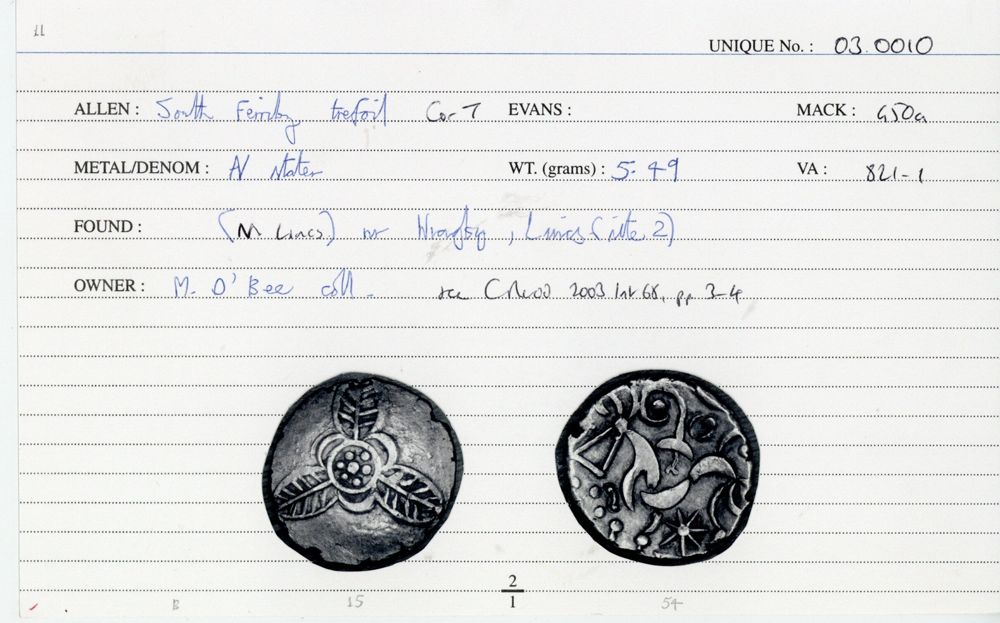 11
UNIQUE No. : 03.0010
ALLEN : South Ferriby trefoil Cor T EVANS : MACK : 450a
METAL/DENOM : AV stater WT. (grams) : 5.49 VA : 821-1
FOUND : (N Lincs) nr Wragby, Lincs (site 2)
OWNER : M. O'Bee coll. see 2003 68, pp. 3-4
2
1
B 15 54